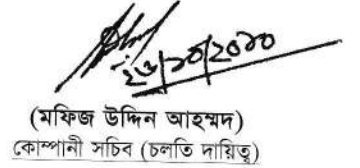 ২৩/১০/২০১০
(মফিজ উদ্দিন আহম্মদ)
কোম্পানী সচিব (চলতি দায়িত্ব)